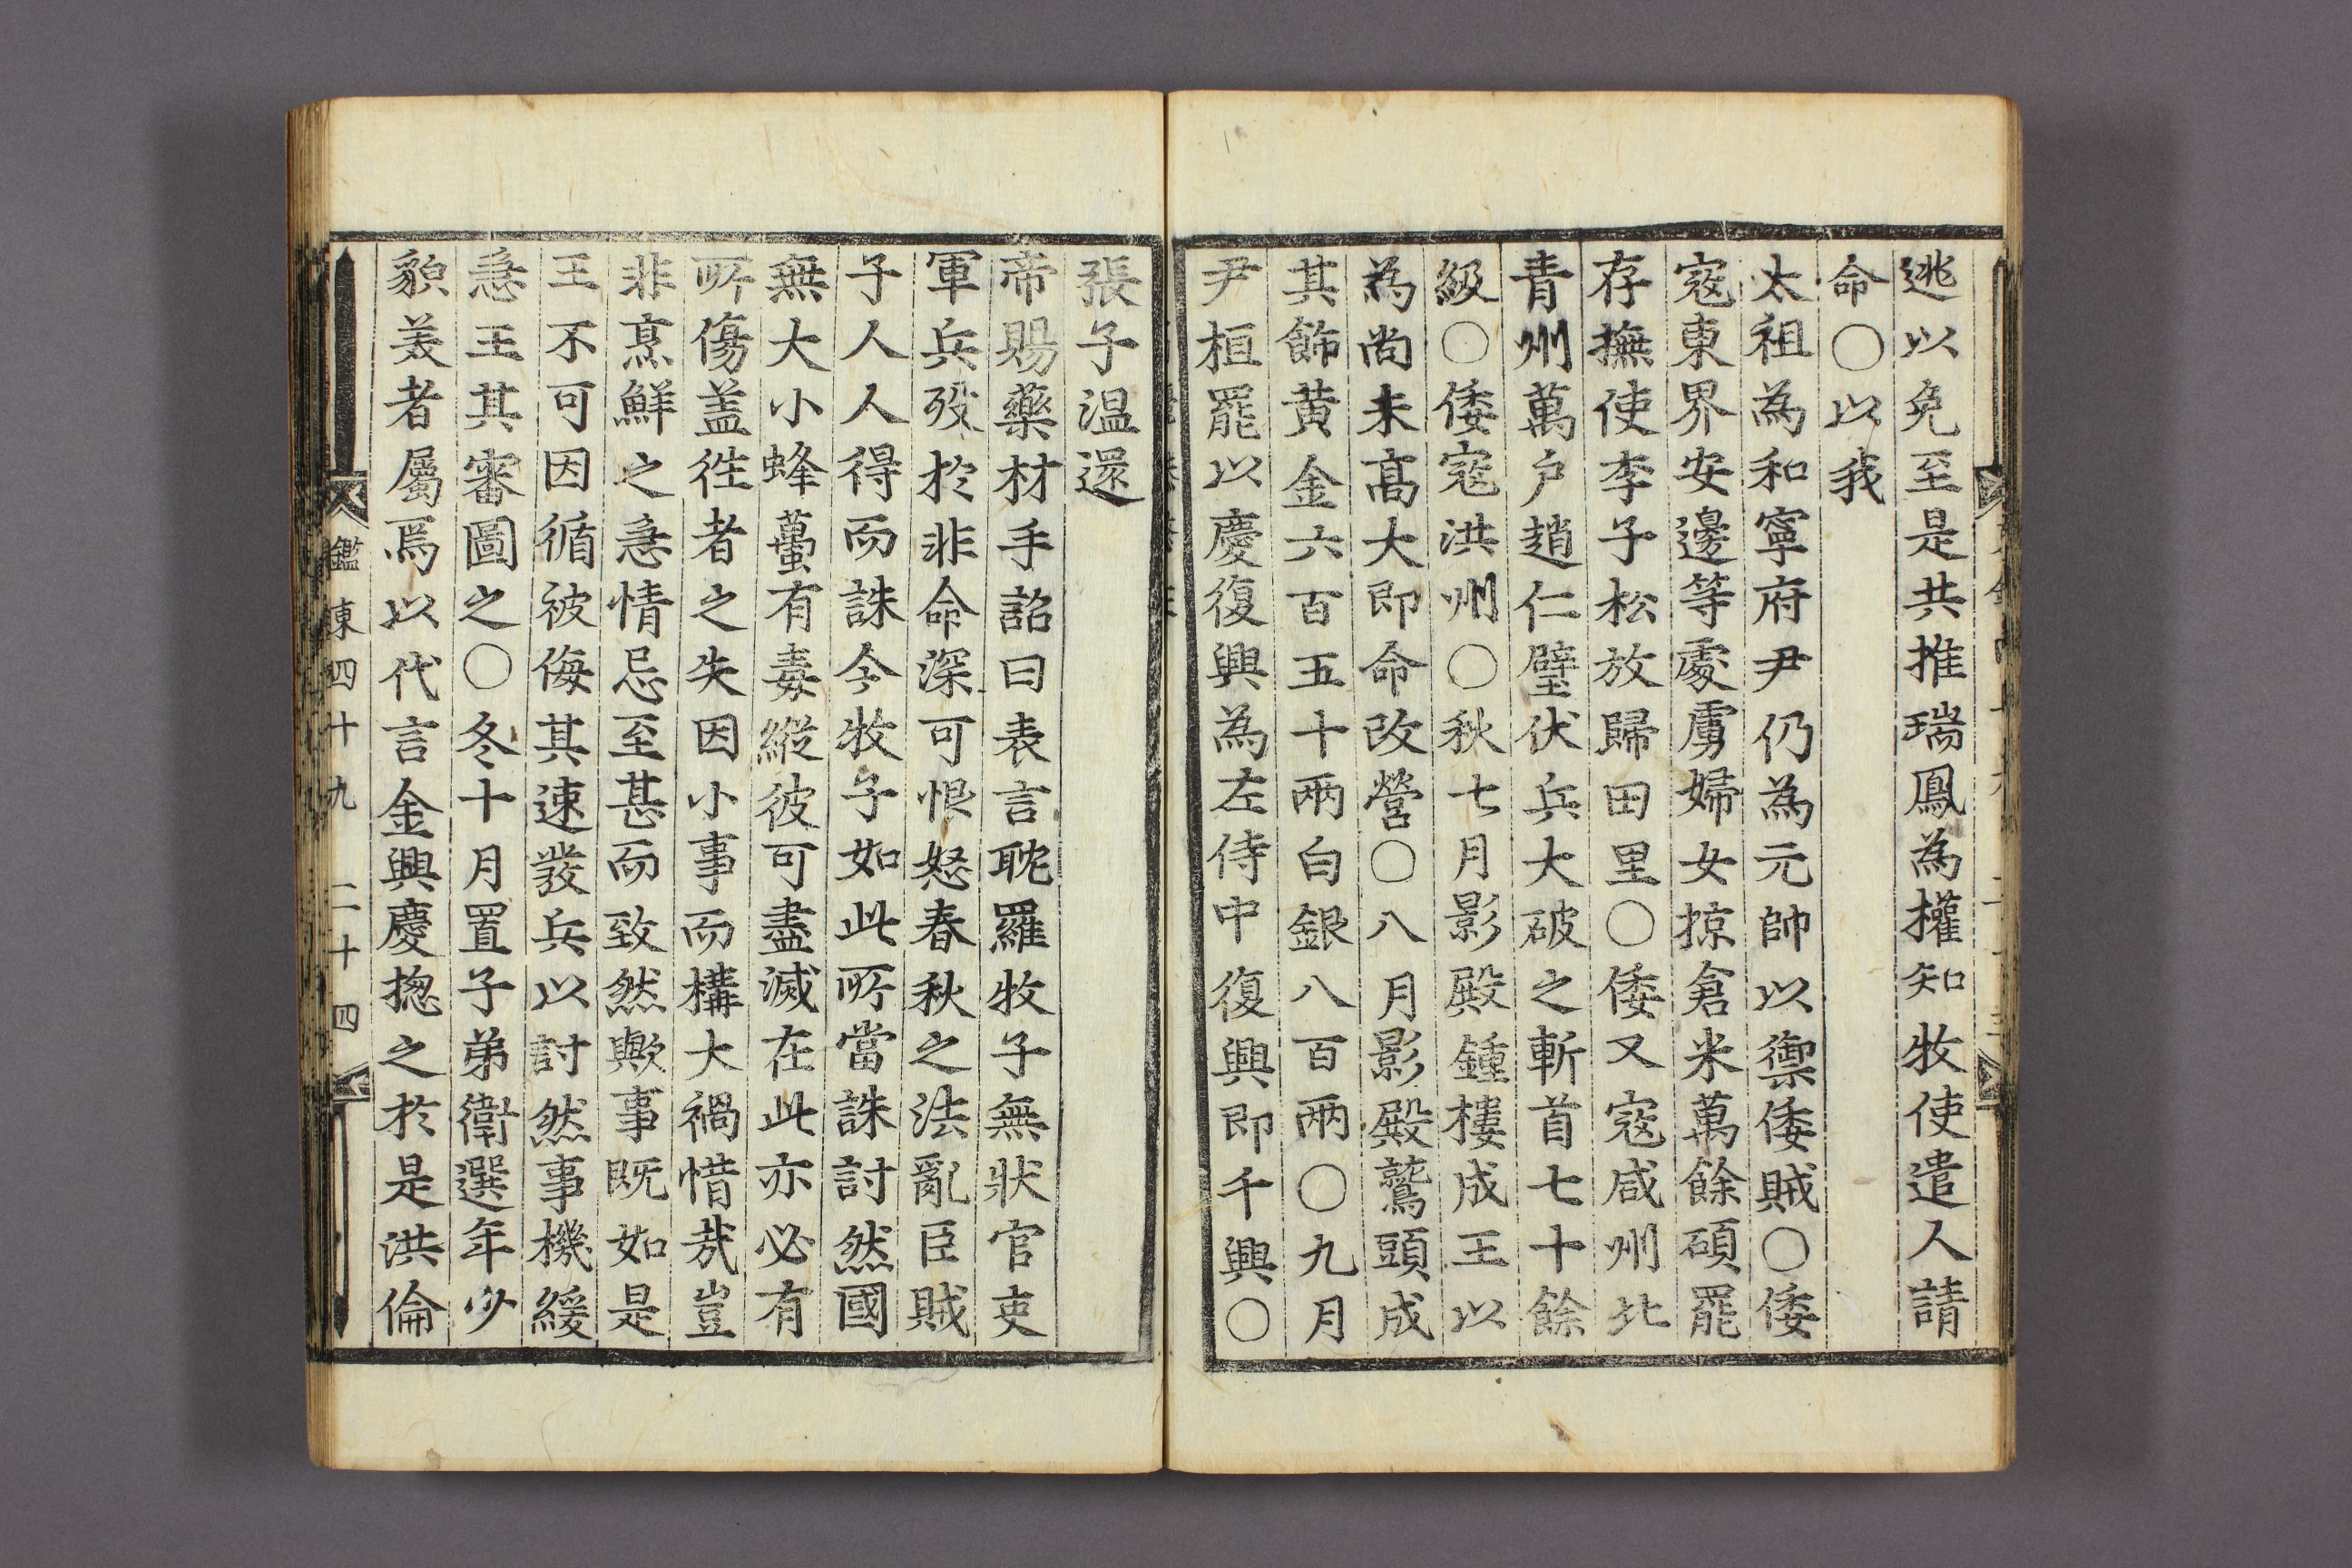 逃以免至是共推瑞鳳為權知牧使遣人請
命〇以我
太祖為和寧府尹仍為元帥以禦倭賊〇倭
寇東界安邊等處虜婦女掠倉米萬餘碩罷
存撫使李子松放歸田里〇倭又寇咸州北
青州萬户趙仁璧伏兵大破之斬首七十餘
級〇倭寇洪州〇秋七月影殿鍾樓成王以
為尚未髙大即命改營〇八月影殿鷲頭成
其飾黄金六百五十兩白銀八百兩〇九月
尹桓罷以慶復興為左侍中復興即千興〇
張子温還
帝賜藥材手詔曰表言耽羅牧子無狀官吏
軍兵殁於非命深可恨怒春秋之法亂臣賊
子人人得而誅今牧子如此所當誅討然國
無大小蜂蠆有毒縱彼可盡滅在此亦必有
所傷盖徃者之失因小事而構大禍惜㦲豈
非烹鮮之急情忌至甚而致然歟事既如是
王不可因循被侮其速發兵以討然事機緩
急王其審圖之〇冬十月置子弟衛選年少
貌美者屬焉以代言金興慶揔之於是洪倫
鑑東四十九 二十四